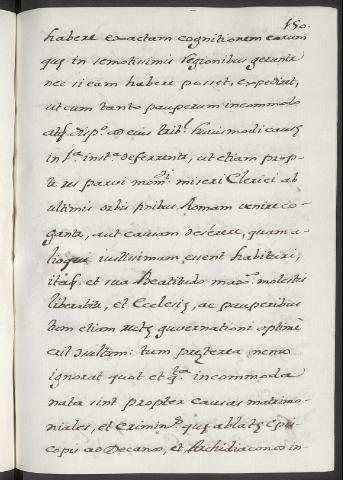 150.
habere exactam cognitionem earum
quę in remotissimis regionibus gerunta
nec si eam habere posset, expedirat,
ut cum tanto pauperum incommodo
atq. disp.o ad eius trib.l huiusmodi causę
in p.a inst.a deferrenta, ut etiam prop-
te res parui mom.ti miseri Clerici ab
ultimis orbis finibus Romam venire co-
ganta, aut causam deserere, quam a-
lioqui iustissimam essent habituri,
itaq. et sua Beatitudo modo. molestiis
liberabita, et Ecclesię, ac pauperibus
tum etiam rectę guvernationi optimè
erit tum pręterea nemo
ignorat quot et q.ta incommoda
nata sint propter causas matrimo-
niales, et Crimin.s quę ablatę Epis-
copis ad Decanos, et Archidiaconos in-